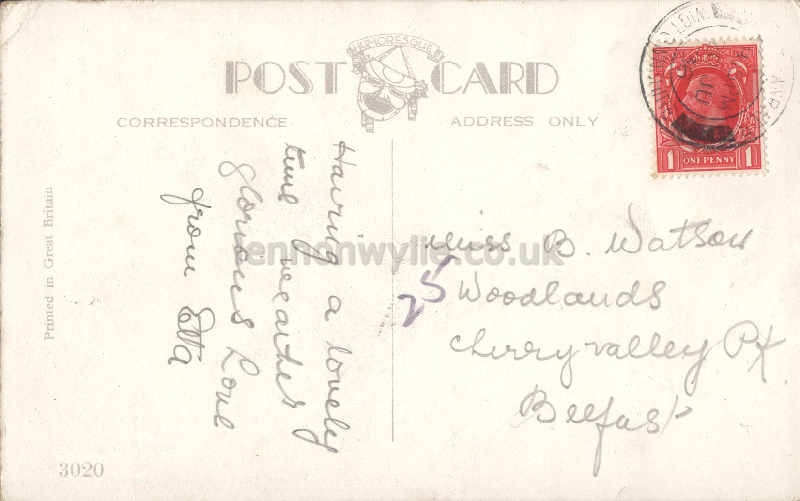 HUMORESQUE
POST CARD
CORRESPONDENCE
ADDRESS ONLY
Having a lovely
time weather
glorious Love
from Etta
Miss B. Watson
25 Woodlands
Cherryvalley Pk
Belfast
1 ONE PENNY 1
Printed in Great Britain
3020
lennonwylie.co.uk